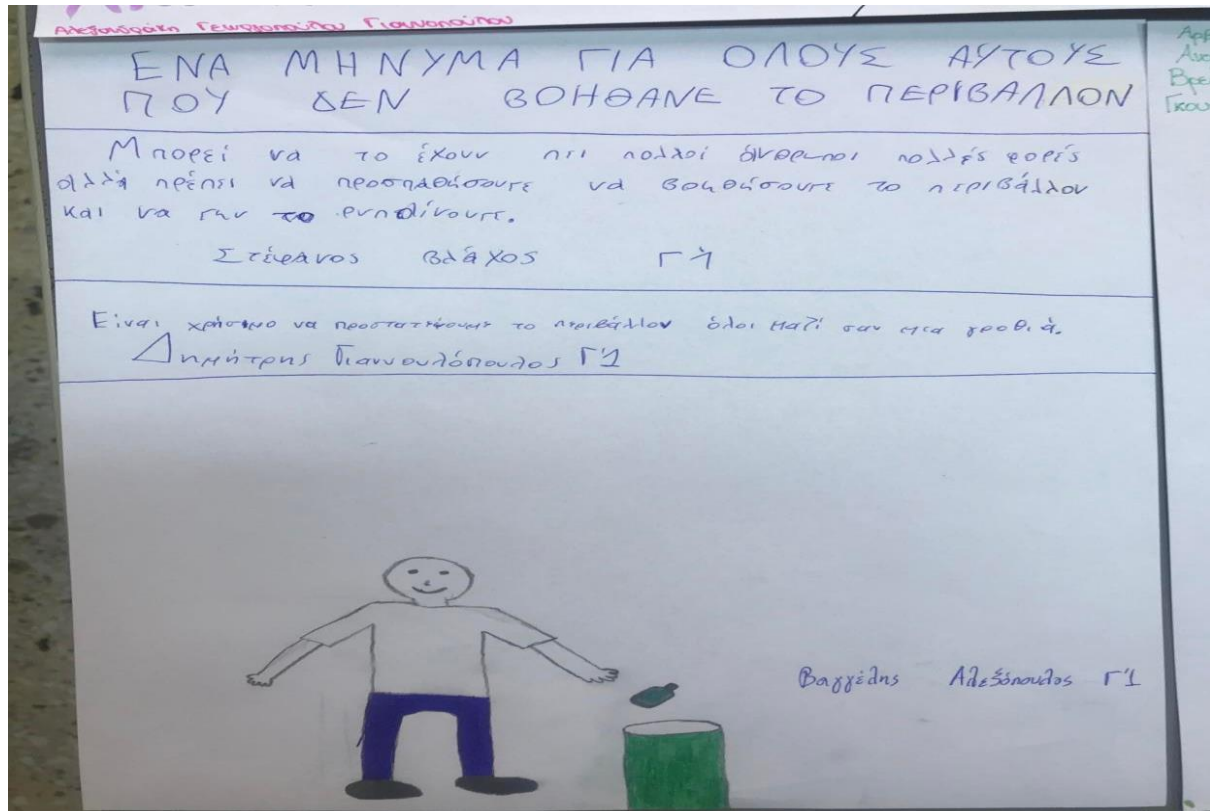 Αλεξανδράκη Γεωργοπούλου Γιαννοπούλου
ΕΝΑ ΜΗΝΥΜΑ ΓΙΑ ΟΛΟΥΣ ΑΥΤΟΥΣ
ΠΟΥ ΔΕΝ ΒΟΗΘΑΝΕ ΤΟ ΠΕΡΙΒΑΛΛΟΝ
Μπορεί να το έχουν πει πολλοί άνθρωποι πολλές φορές
αλλά πρέπει να προσπαθήσουμε να βοηθήσουμε το περιβάλλον
και να μην το ρυπαίνουμε.
Στέφανος Βλάχος Γ1
Είναι χρήσιμο να προστατέψουμε το περιβάλλον όλοι μαζί σαν μια γροθιά.
Δημήτρης Γιαννουλόπουλος Γ'1
Βαγγέλης Αλεξόπουλος Γ'1